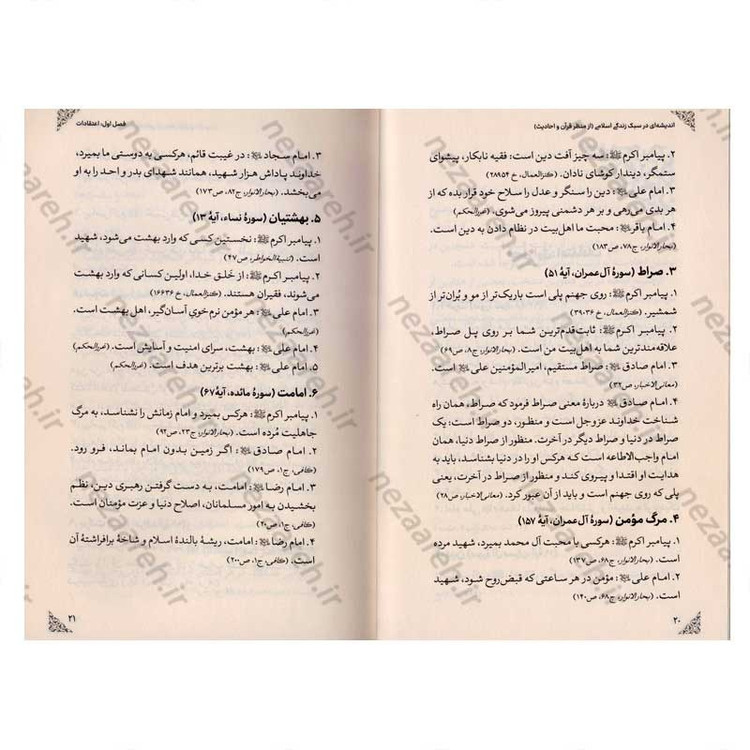 اندیشه‌ای در سبک زندگی اسلامی (از منظر قرآن و احادیث)
۲. پیامبر اکرم ﷺ: سه چیز آفت دین است: فقیه نابکار، پیشوای
ستمگر، دیندار کوشای نادان. (کنزالعمال، ح ۲۸۹۵۴)
۳. امام علی: دین را سنگر و عدل را سلاح خود قرار بده که از
هر بدی می‌رهی و بر هر دشمنی پیروز می‌شوی. (غررالحکم)
۴. امام باقر: محبت ما اهل‌بیت در نظام دادن به دین است.
(بحارالانوار، ج۷۸، ص۱۸۳)
۳. صراط (سورهٔ آل عمران، آیهٔ ۵۱)
۱. پیامبر اکرم ﷺ: روی جهنم پلی است باریک‌تر از مو و بُران‌تر از
شمشیر. (کنزالعمال، ح ۳۹۰۳۶)
۲. پیامبر اکرم ﷺ: ثابت‌قدم‌ترین شما بر روی پل صراط،
علاقه‌مندترین شما به اهل‌بیت من است. (بحارالانوار، ج۸، ص۶۹)
۳. امام صادق: صراط مستقیم، امیرالمؤمنین علی است.
(معانی‌الاخبار، ص۳۲)
۴. امام صادق دربارهٔ معنی صراط فرمود که صراط، همان راه
شناخت خداوند عزوجل است و منظور، دو صراط است: یک
صراط در دنیا و صراط دیگر در آخرت. منظور از صراط دنیا، همان
امام واجب‌الاطاعه است که هرکس او را در دنیا بشناسد، باید به
هدایت او اقتدا و پیروی کند و منظور از صراط در آخرت، یعنی
پلی که روی جهنم است و باید از آن عبور کرد. (معانی‌الاخبار، ص۲۸)
۴. مرگ مؤمن (سورهٔ آل عمران، آیهٔ ۱۵۷)
۱. پیامبر اکرم ﷺ: هرکسی با محبت آل محمد بمیرد، شهید مرده
است. (بحارالانوار، ج۶۸، ص۱۳۷)
۲. امام علی: مؤمن در هر ساعتی که قبض‌روح شود، شهید
است. (بحارالانوار، ج۶۸، ص۱۴۰)
۲۰
فصل اول: اعتقادات
۳. امام سجاد: در غیبت قائم، هرکسی به دوستی ما بمیرد،
خداوند پاداش هزار شهید، همانند شهدای بدر و احد را به او
می‌بخشد. (بحارالانوار، ج۸۲، ص۱۷۳)
۵. بهشتیان (سورهٔ نساء، آیهٔ ۱۳)
۱. پیامبر اکرم ﷺ: نخستین کسی که وارد بهشت می‌شود، شهید
است. (تنبیه‌الخواطر، ص۴۷)
۲. پیامبر اکرم ﷺ: از خلق خدا، اولین کسانی که وارد بهشت
می‌شوند، فقیران هستند. (کنزالعمال، ح ۱۶۶۳۶)
۳. امام علی: هر مؤمن نرم‌خویِ آسان‌گیر، اهل بهشت است.
(غررالحکم)
۴. امام علی: بهشت، سرای امنیت و آسایش است. (غررالحکم)
۵. امام علی: بهشت برترین هدف است. (غررالحکم)
۶. امامت (سورهٔ مائده، آیهٔ ۶۷)
۱. پیامبر اکرم ﷺ: هرکس بمیرد و امام زمانش را نشناسد، به مرگ
جاهلیت مُرده است. (بحارالانوار، ج۲۳، ص۹۲)
۲. امام صادق: اگر زمین بدون امام بماند، فرو رود.
(کافی، ج۱، ص۱۷۹)
۳. امام رضا: امامت، به دست گرفتن رهبری دین، نظم
بخشیدن به امور مسلمانان، اصلاح دنیا و عزت مؤمنان است.
(کافی، ج۱، ص۲۰۰)
۴. امام رضا: امامت، ریشهٔ بالندهٔ اسلام و شاخهٔ برافراشتهٔ آن
است. (کافی، ج۱، ص۲۰۰)
۲۱
nezaareh.ir